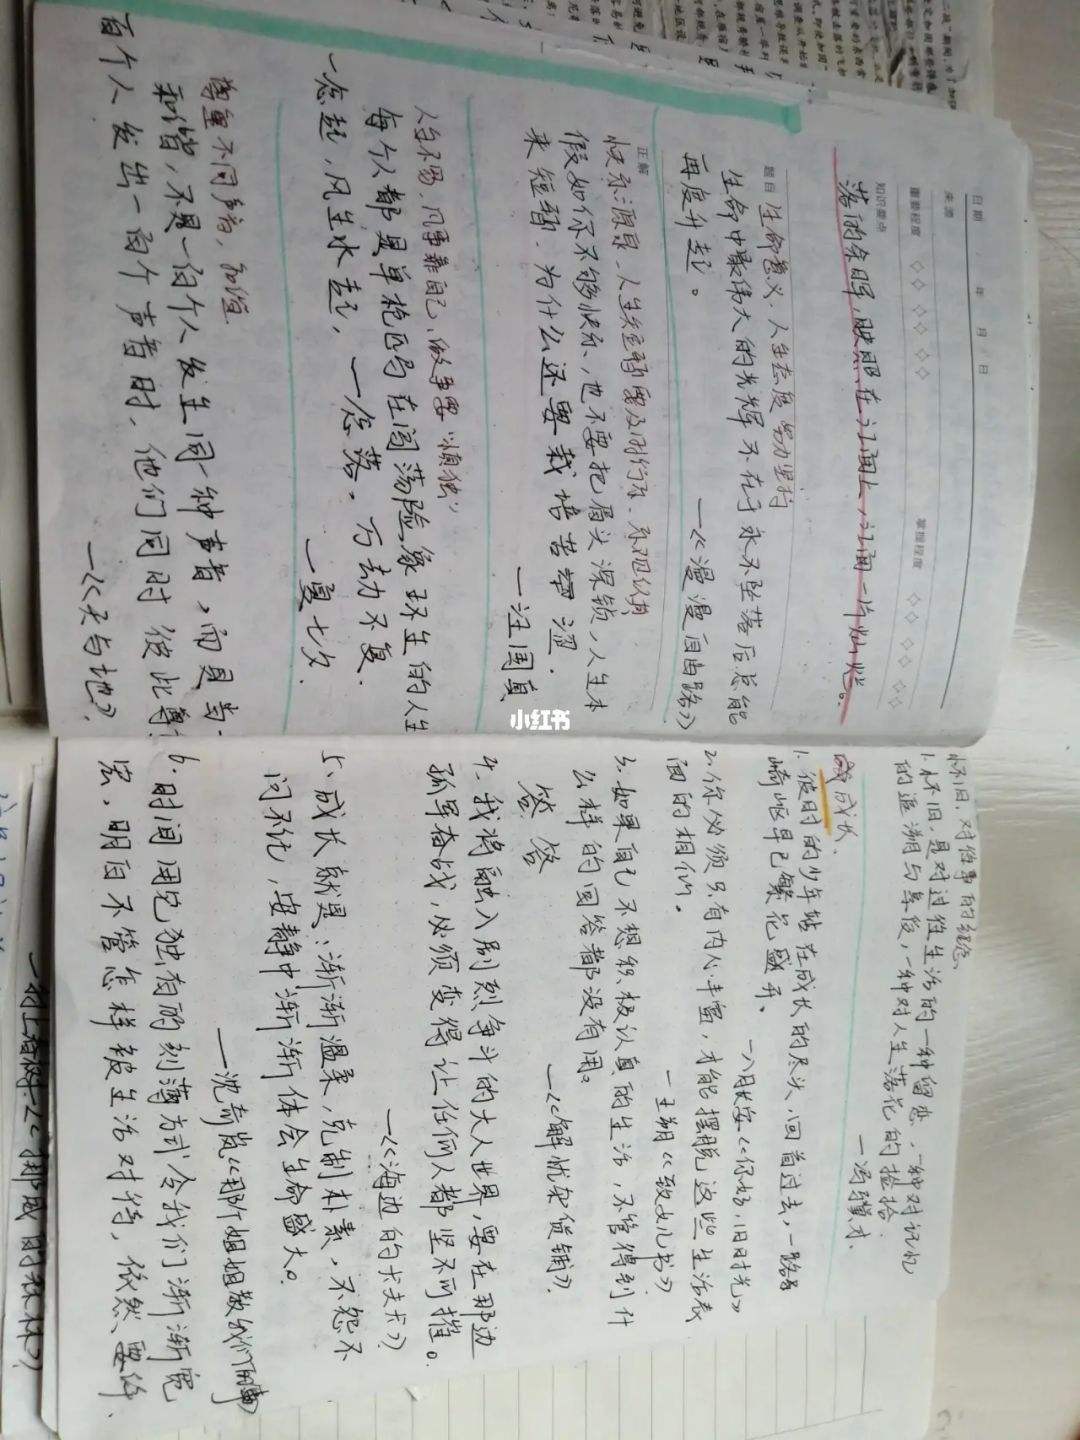 日期 年 月 日
来源
重要程度 掌握程度
知识要点
落的余晖,映照在江面上,江面一片灿烂。
题目 生命意义、人生态度 努力坚持
生命中最伟大的光辉不在于永不坠落后总能
再度升起。 —《漫漫自由路》
正解
快乐源泉、人生短暂要及时行乐、乐观认真
假如你不够快乐,也不要把眉头深锁,人生本
来短暂,为什么还要栽培苦涩。
—汪国真
人生不易,凡事靠自己,做事要“慎独”
每个人都是单枪匹马在闯荡险象环生的人生
一念起,风生水起,一念落,万劫不复。
—夏七夕
尊重不同声音,和谐
和谐,不是一百个人发生同一种声音,而是当一
百个人发出一百个声音时,他们同时彼此尊
—《天与地》
怀旧,对往事的
1.怀旧,是对过往生活的一种留恋,一种对记忆
的追溯与 ,一种对人生落花的捡拾
—冯骥才
成长
1.彼时的少年站在成长的尽头,回首过去,一路
崎岖早已繁花盛开。
—八月长安《你好,旧时光》
2.你必须只有内心丰富,才能摆脱这些生活表
面的相似。
—王朔《致女儿书》
3.如果自己不想积极认真的生活,不管得到什
么样的回答都没有用。
—《解忧杂货铺》
答 答
4.我将融入刷刻争斗的大人世界,要在那边
孤军奋战,必须变得让任何人都坚不可摧。
—《海边的卡夫卡》
5.成长就是:渐渐温柔,克制朴素,不怨不
问不记,安静中渐渐体会生命盛大。
—沈奇岚《那个姐姐教我们的事》
6.时间用它独有的刻薄方式令我们渐渐宽
宏,明白不管怎样被生活对待,依然要
—村上春树《挪威的森林》
小红书